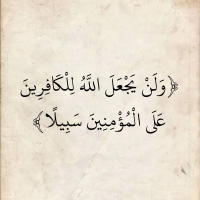 ﴿وَلَنْ يَجْعَلَ اللَّهُ لِلْكَافِرِينَ
عَلَى الْمُؤْمِنِينَ سَبِيلًا﴾